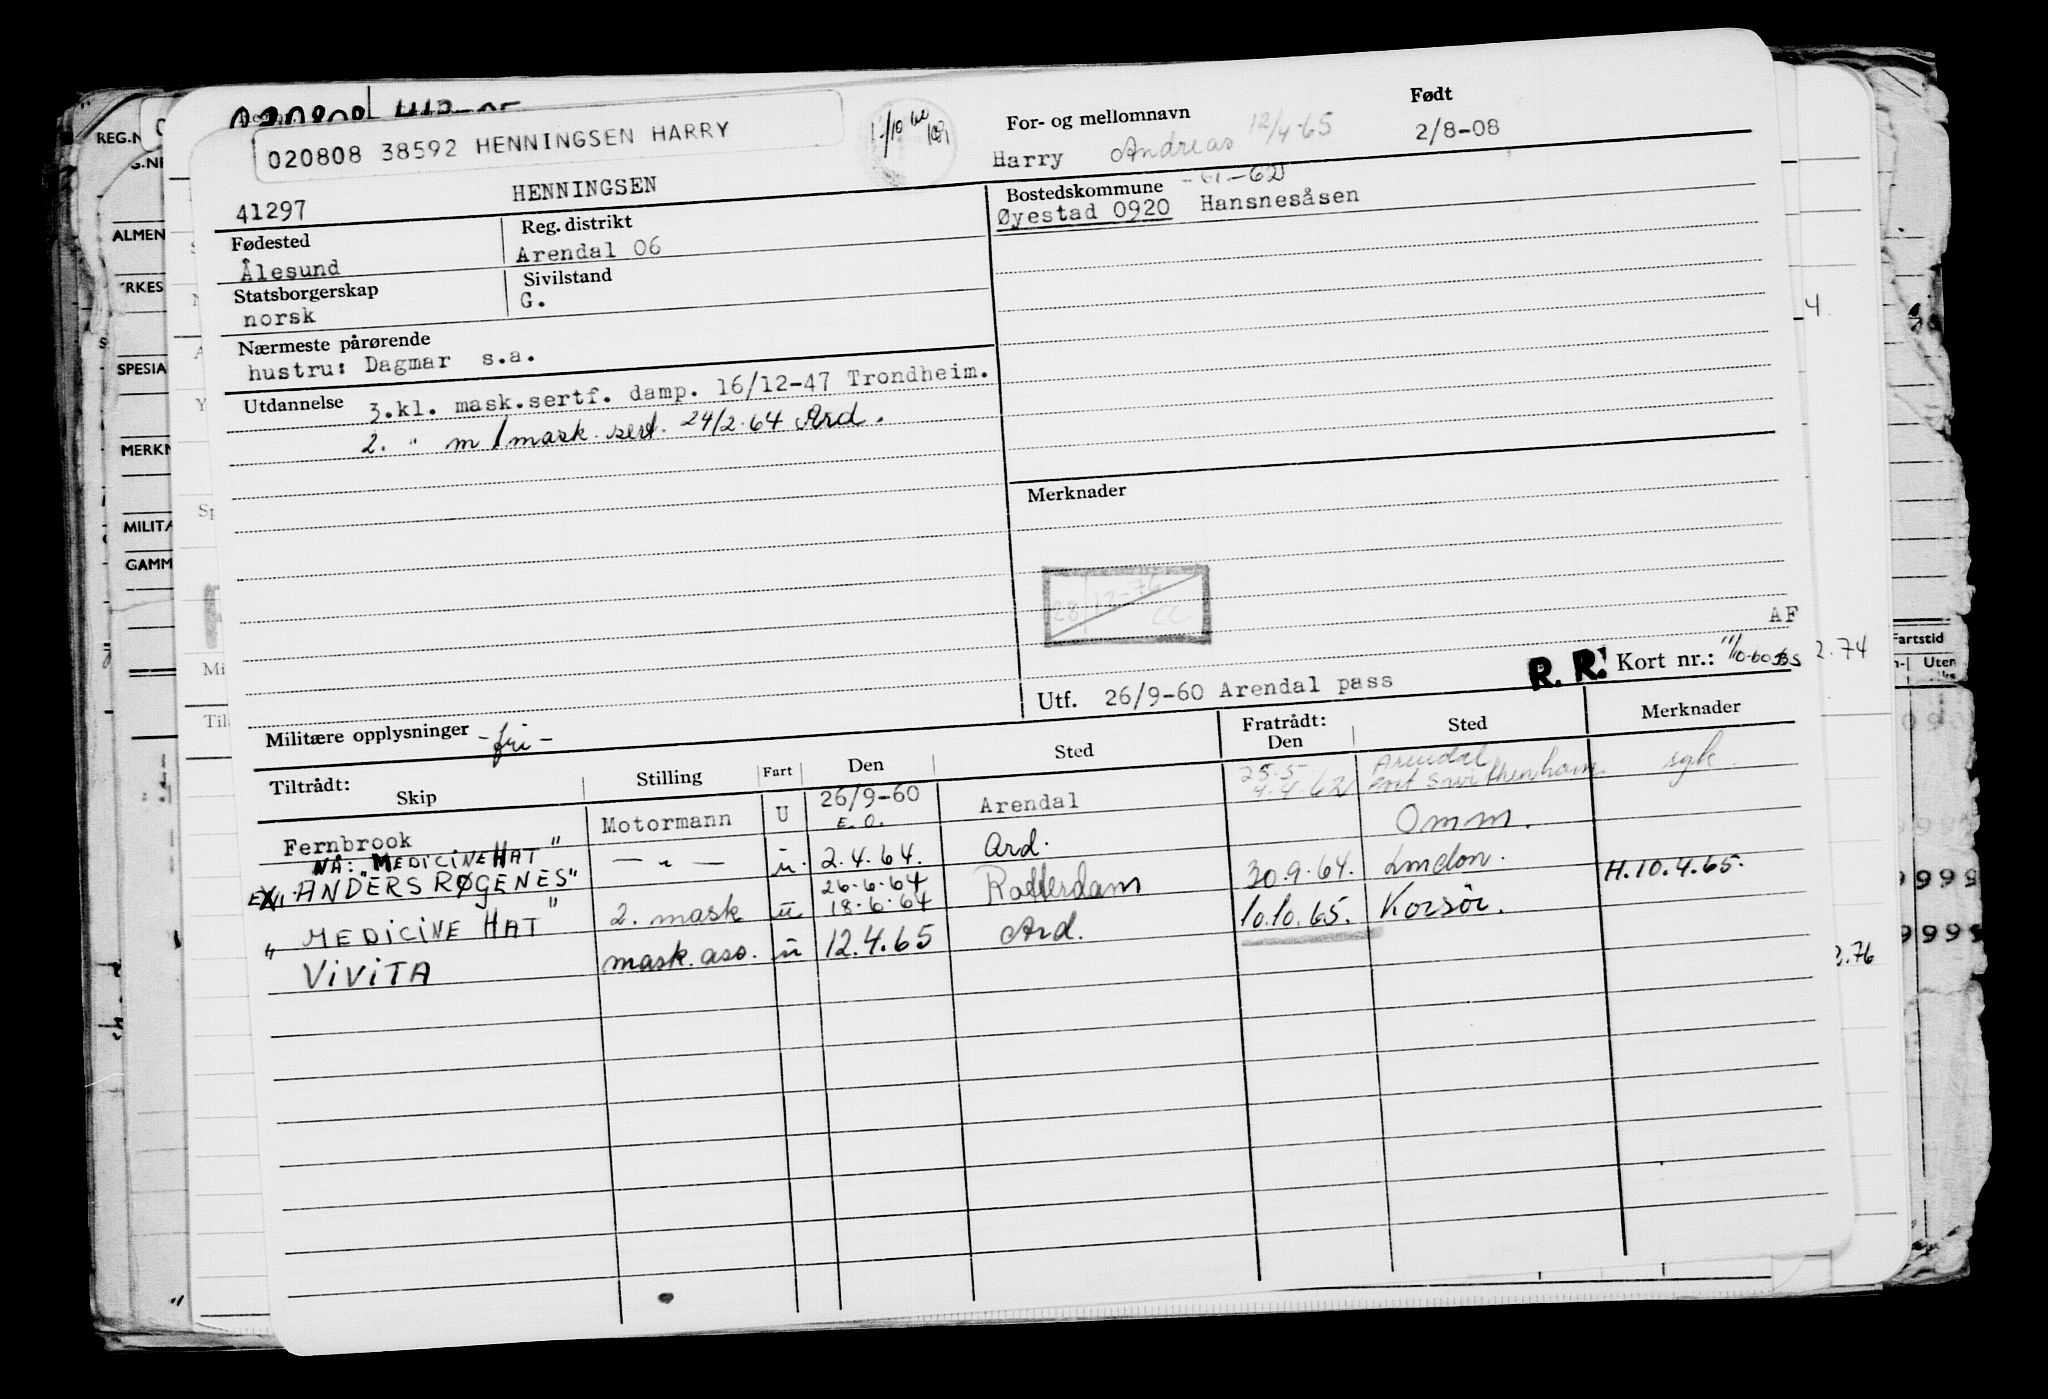 020808
020808 38592 HENNINGSEN HARRY
For- og mellomnavn
Født
Harry Andreas 12/4-65
2/8-08
41297 HENNINGSEN
Bostedskommune
Øyestad 0920 Hansnesåsen
Fødested
Reg. distrikt
Ålesund
Arendal 06
Statsborgerskap
Sivilstand
norsk
G.
Nærmeste pårørende
hustru: Dagmar s.a.
Utdannelse
3.kl. mask.sertf. damp. 16/12-47 Trondheim.
2. " m/mask. sert. 24/2.64 Ard.
Merknader
28/12-76
AF
R. R. Kort nr.:
Utf. 26/9-60 Arendal pass
Militære opplysninger -fri-
Tiltrådt:
Skip
Stilling
Fart
Den
Sted
Fratrådt:
Den
Sted
Merknader
Fernbrook Motormann U 26/9-60 Arendal 25.5 Arendal syk.
E.O. 4.4.62
NÅ: "MEDICINE HAT"
EX. "ANDERS RØGENES" — " — u. 2.4.64. Ard. Omm.
26.6.64
" MEDICINE HAT " 2. mask u 18.6.64 Rotterdam 30.9.64. London. H.10.4.65.
VIVITA mask. ass. u 12.4.65 Ard. 10.10.65. Korsör.
REG.N
ALMEN
YRKES
SPESIA
MERKN
MILITA
GAMM
Fartstid
Uten
2.74
2.76